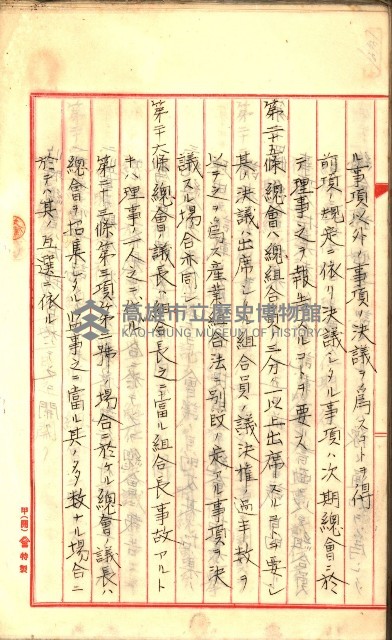 ル事項以外ノ事項ノ決議ヲ爲スコトヲ得
前項ノ規定ニ依リ決議シタル事項ハ次期總會ニ於
テ理事之ヲ報告スルコトヲ要ス
第三十五條 總會ハ總組合員三分ノ一以上出席スルコトヲ要シ
其ノ決議ハ出席シタル組合員ノ議決權ノ過半數ヲ
以テシ之ヲ爲ス産業組合法ニ別段ノ定アル事項ヲ決
議スル場合亦同シ
第三十六條 總會ノ議長ハ組合長之ニ當ル組合長事故アルト
キハ理事ノ一人之ニ任ル
第三十三條第三項第二號ノ場合ニ於ケル總會ノ議長ハ
總會ヲ招集シタル監事之ニ當ル其ノ多數ナル場合ニ
於テハ其ノ互選ニ依ル
高雄市立歷史博物館
KAOHSIUNG MUSEUM OF HISTORY
特製